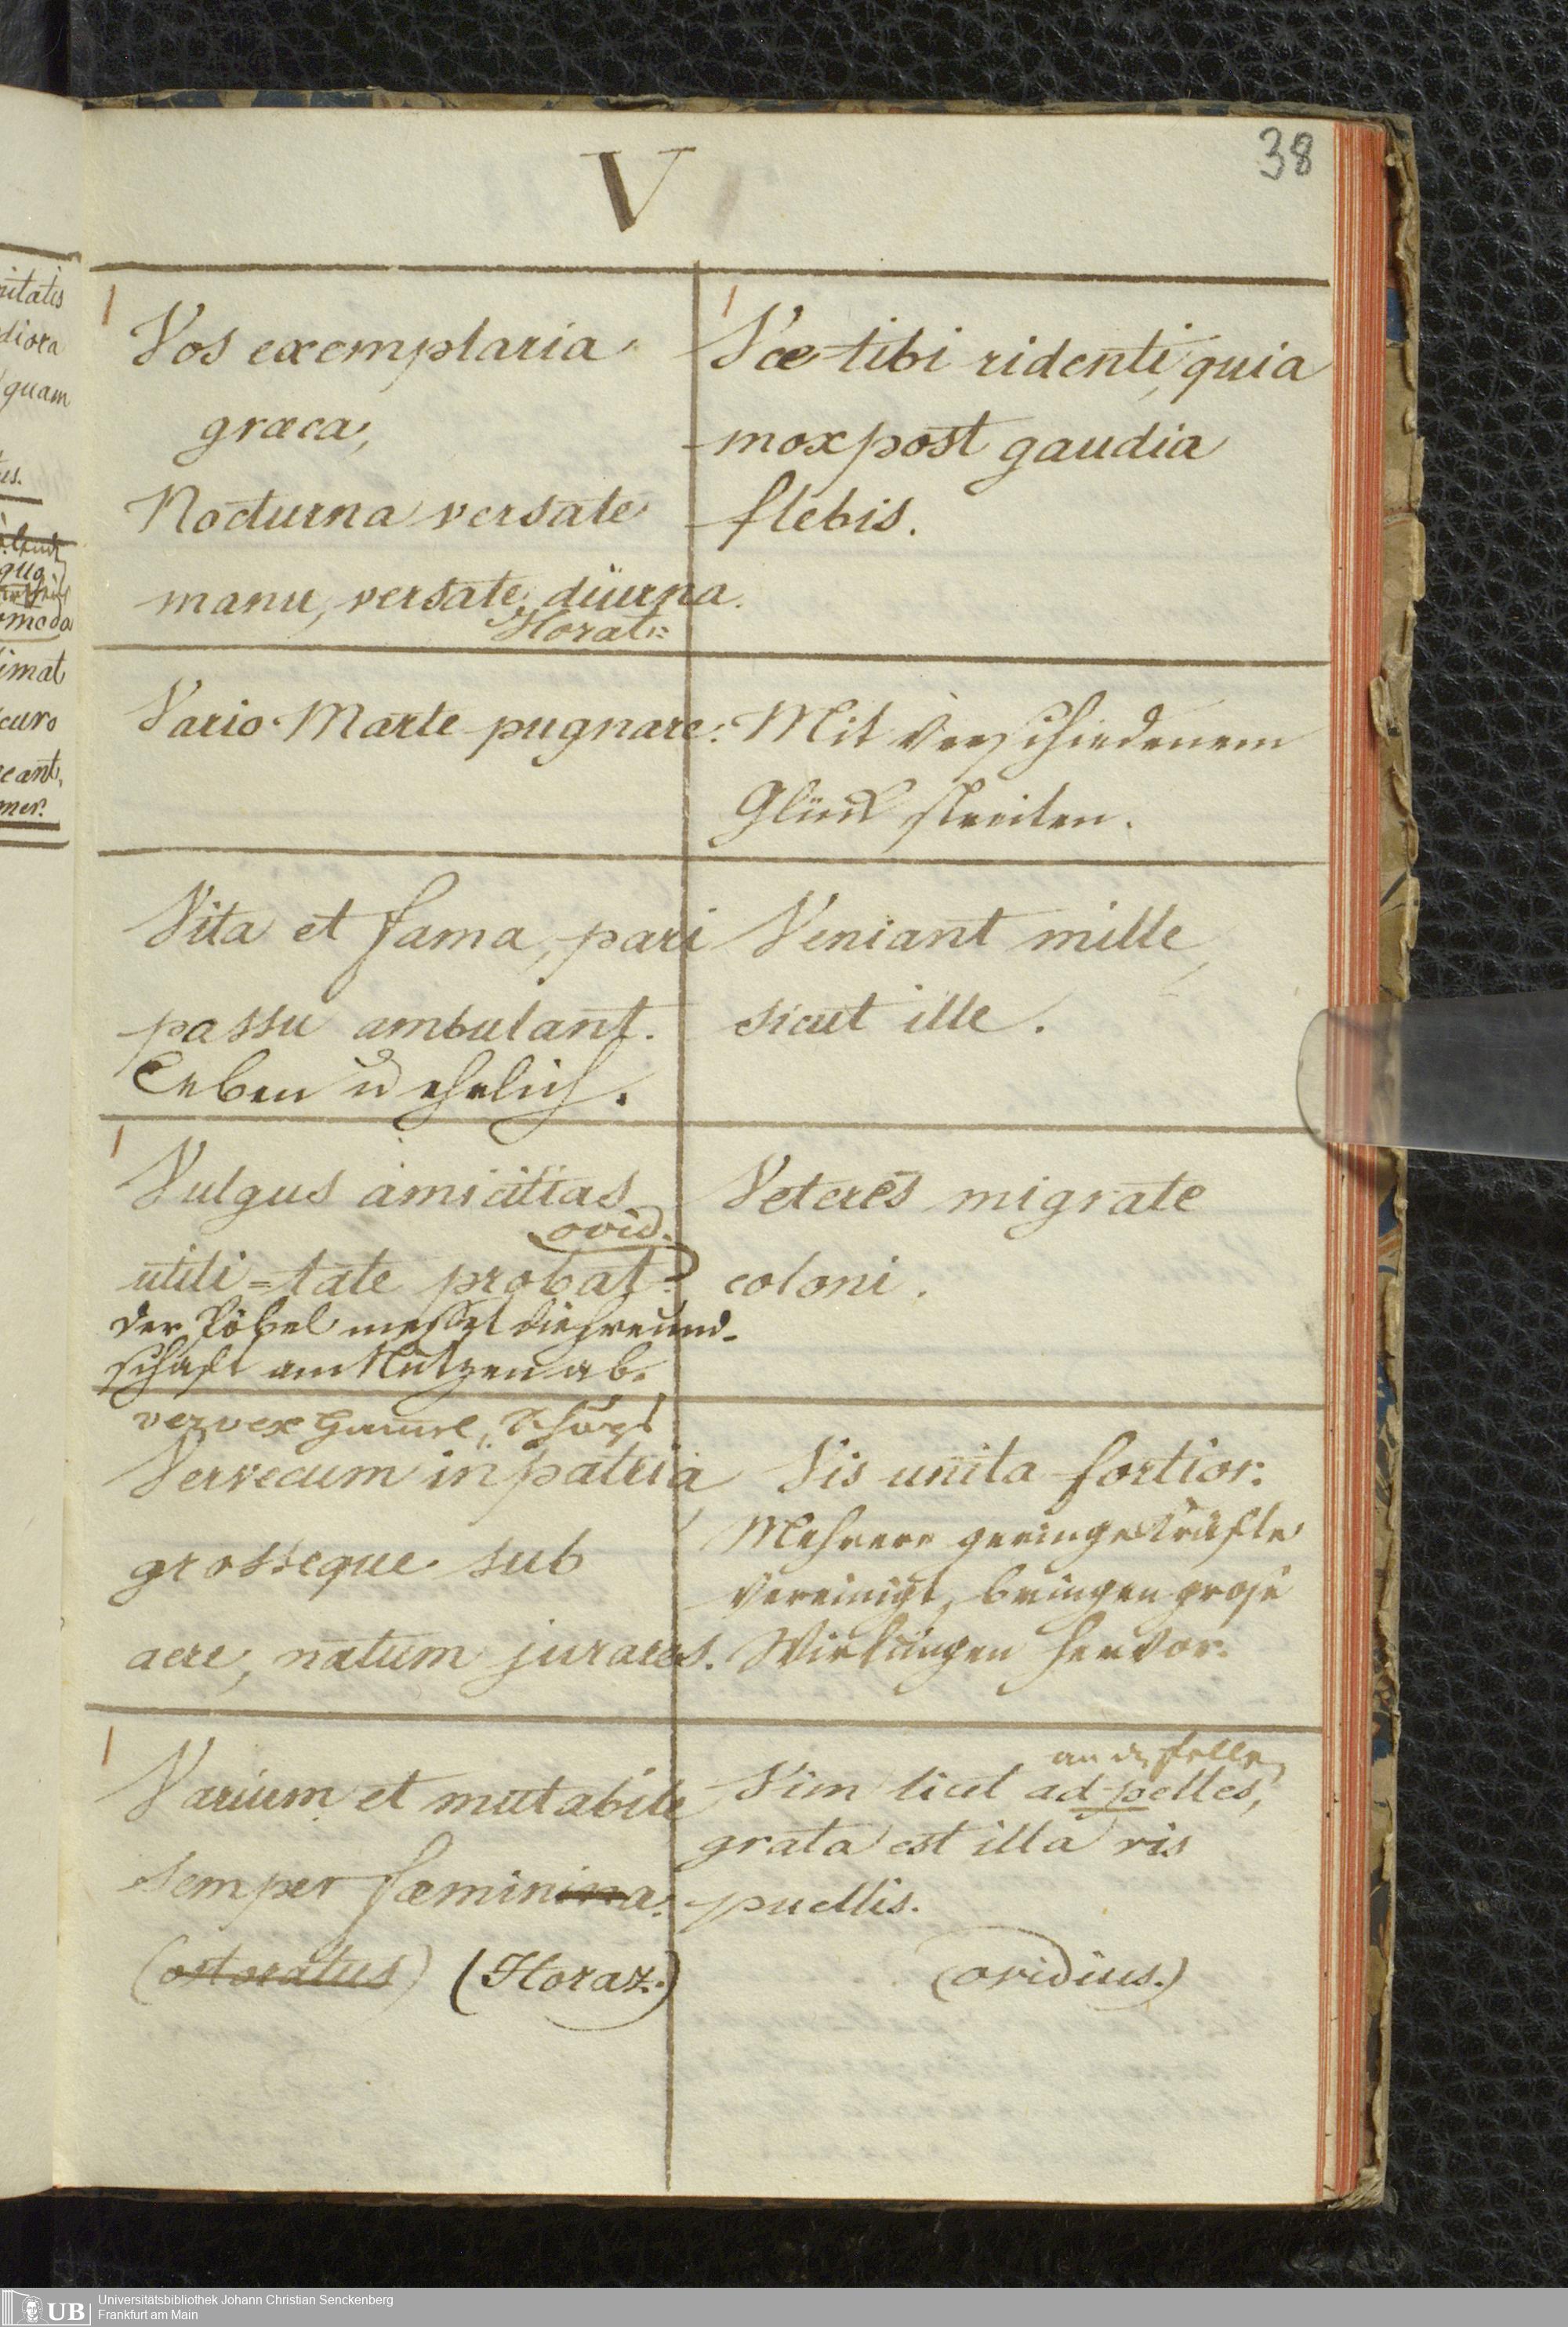 38
V
Vos exemplaria
græca,
Nocturna versate
manu, versate diurna.
Horat:
Væ tibi ridenti, quia
mox post gaudia
flebis.
Vario Marte pugnare:
Mit verschiedenem
Glück streiten.
Vita et fama, pari
passu ambulant.
Leben u ehrlich.
Veniant mille,
sicut ille.
Vulgus amicitias
ovid.
utili=tate probat.
der Pöbel messet die Freund-
schaft am Nutzen ab.
Veteres migrate
coloni.
vervex Hamel, Schöps
Vervecum in patria
grosseque sub
aere, natum jurares.
Vis unita fortior:
Mehrere geringe Kräfte
vereinigt, bringen grose
Wirkungen hervor.
Varium et mutabile
semper fœminina.
(Horaz.)
an die felle
Vim licet ad pelles,
grata est illa vis
puellis.
(ovidius.)
nitatis
diora
quam
us.
quo
omoda
imat
curo
eant,
mer.
UB
Universitätsbibliothek Johann Christian Senckenberg
Frankfurt am Main